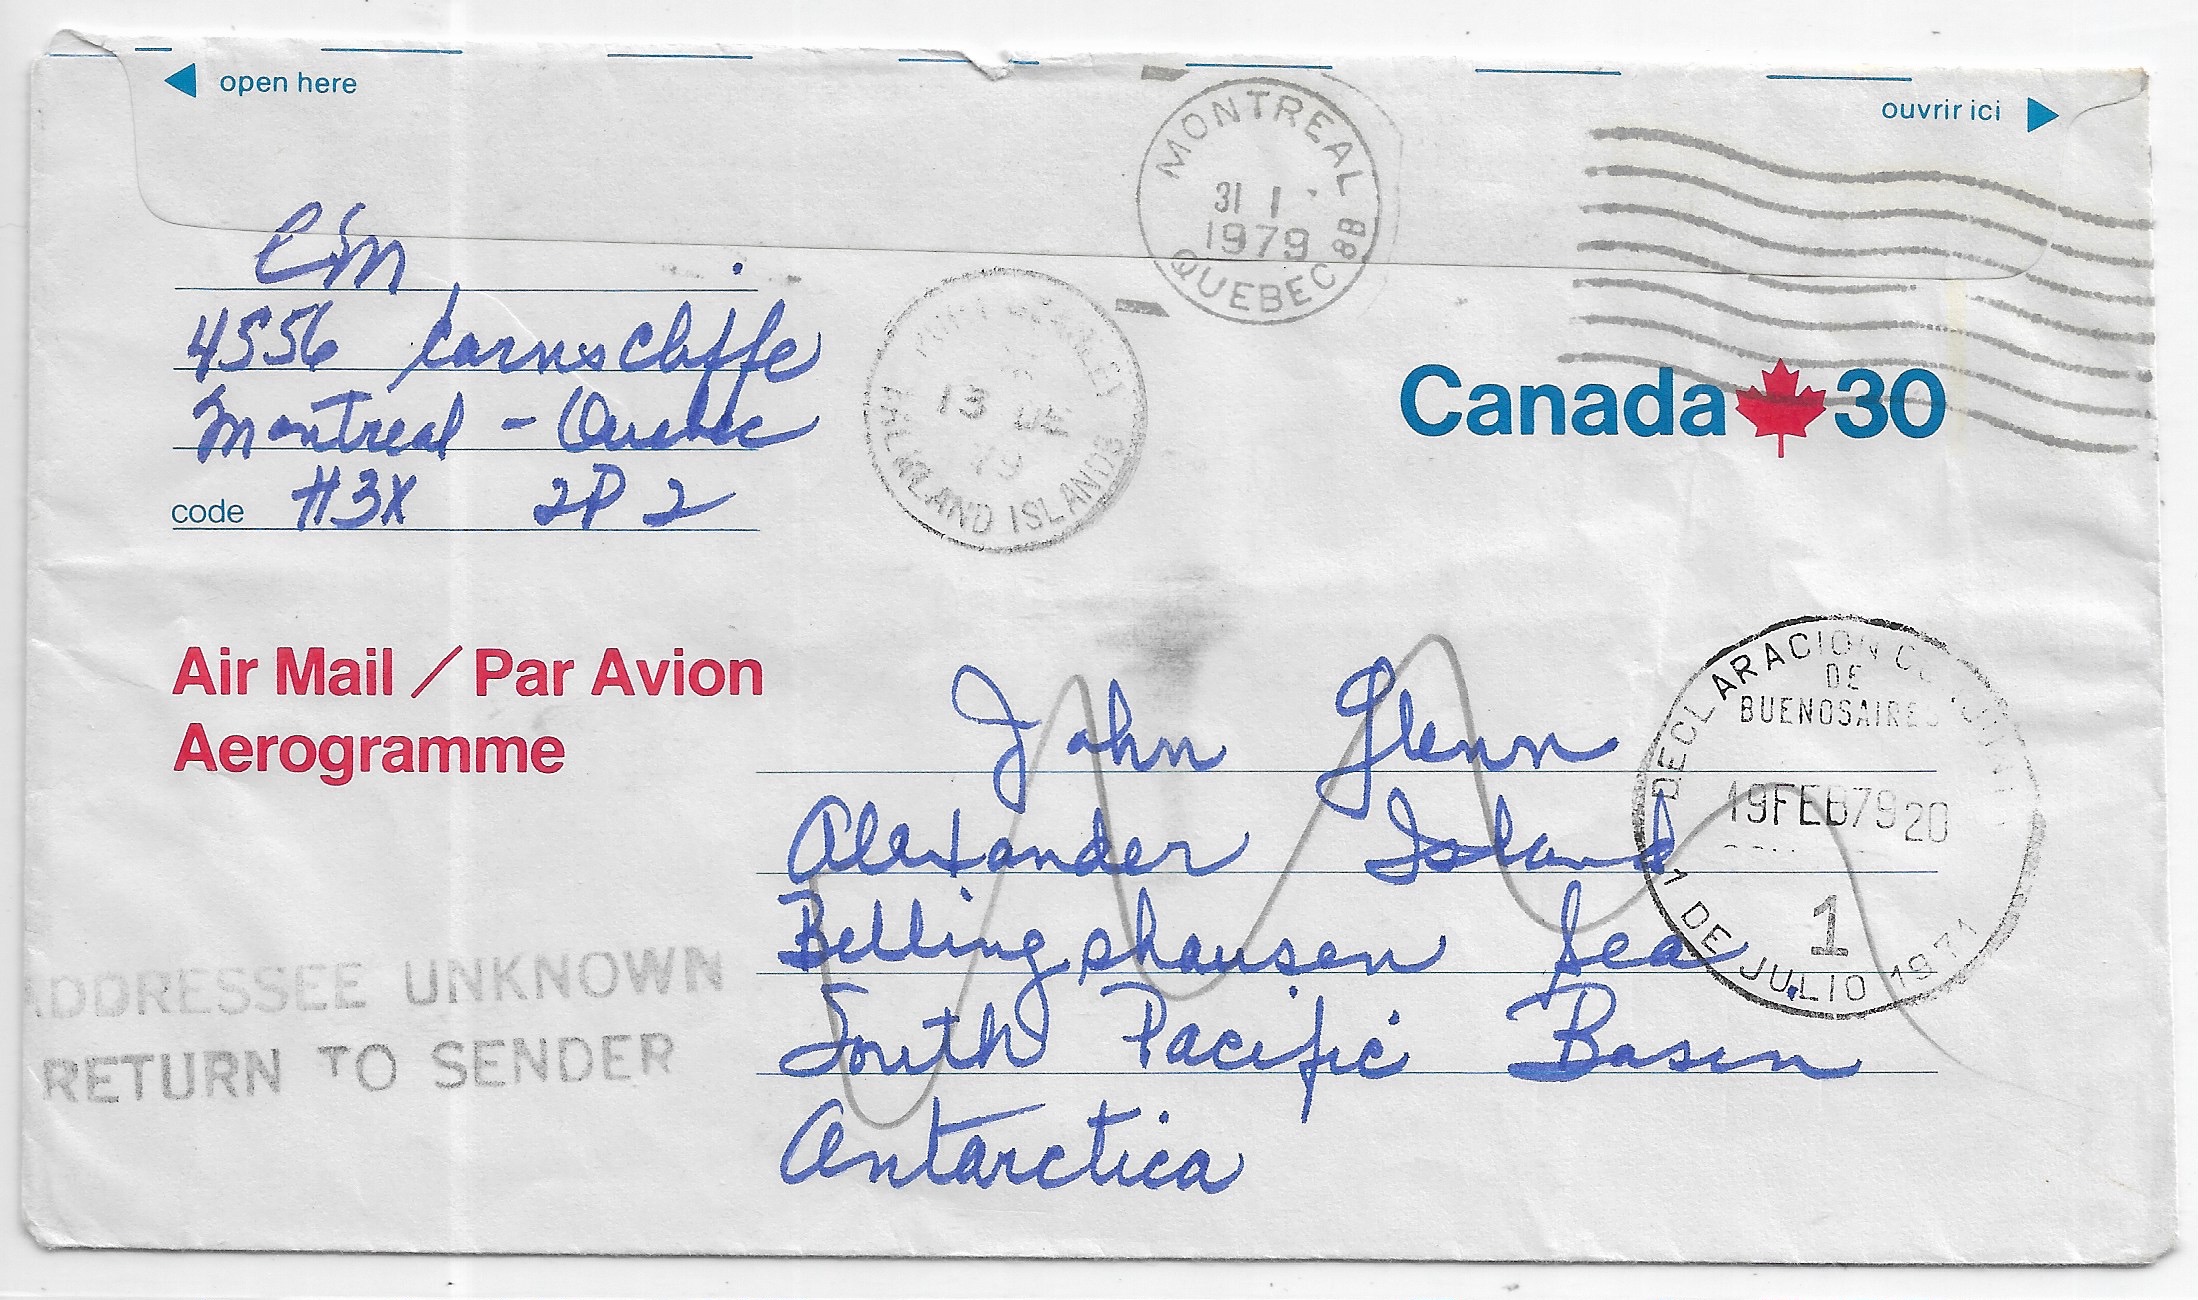 open here
ouvrir ici
MONTREAL
31 1
1979
QUEBEC 8B
4556 Carnscliffe
Montreal - Quebec
code H3X 2P2
PORT STANLEY
13 DE
79
FALKLAND ISLANDS
Canada 30
Air Mail / Par Avion
Aerogramme
DECLARACION
DE
BUENOSAIRES
19FEB79 20
1
1 DE JULIO 1971
John Glenn
Alexander Island
Bellingshausen Sea
South Pacific Basin
Antarctica
ADDRESSEE UNKNOWN
RETURN TO SENDER